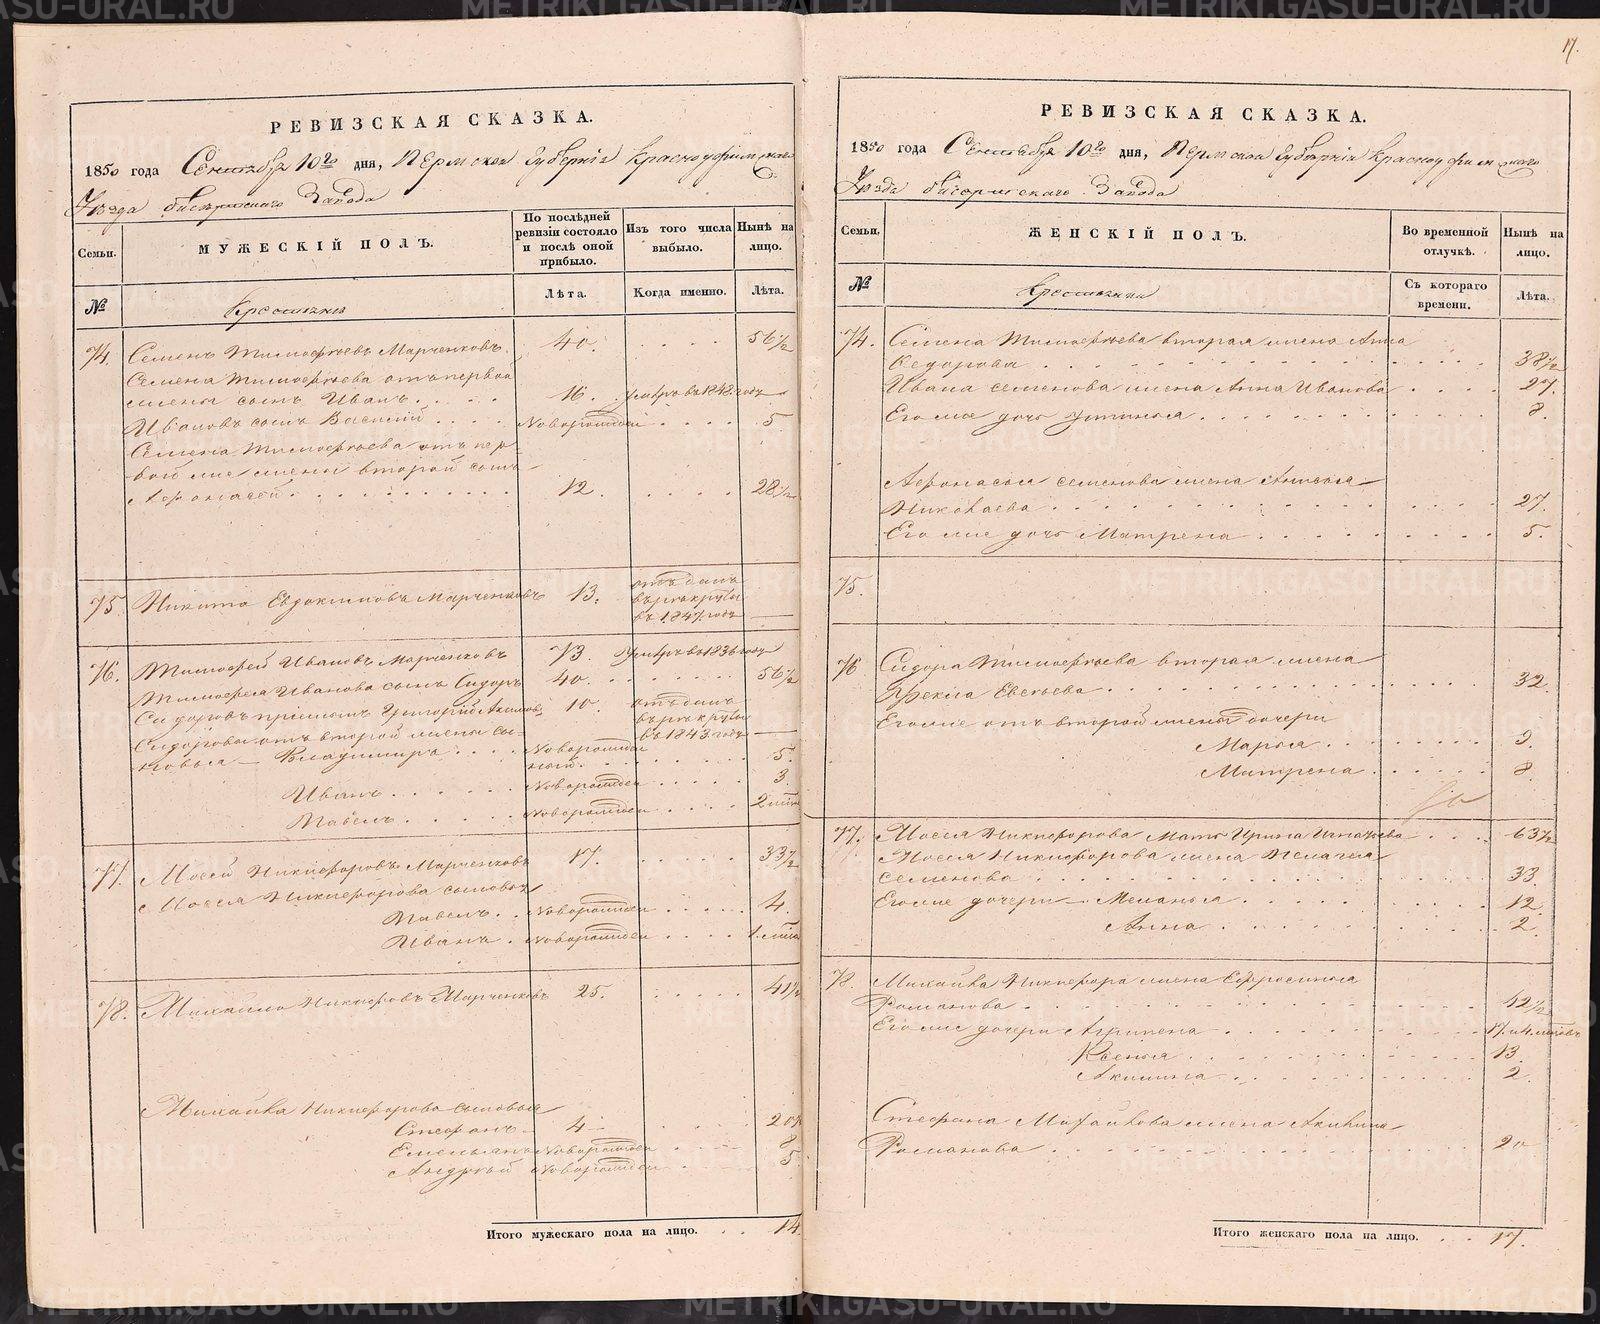 РЕВИЗСКАЯ СКАЗКА.
1850 года Сентября 10го дня, Пермской Губернiи Красноуфимскаго
Уѣзда Бисертскаго Завода
Семьи.
МУЖЕСКIЙ ПОЛЪ.
По послѣдней ревизiи состояло и послѣ оной прибыло.
Изъ того числа выбыло.
Нынѣ на лицо.
№
Крестьяне
Лѣта.
Когда именно.
Лѣта.
74. Семенъ Тимофѣевъ Марченковъ. 40. 56 1/2
Семена Тимофѣева отъ первой
жены сынъ Иванъ. 16. умеръ въ 1848. году —
Ивановъ сынъ Василiй Новорожден 5
Семена Тимофѣева отъ пер-
вой же жены второй сынъ
Афонасей 12. 28 1/2
75. Никита Евдокимовъ Марченковъ 13. отъданъ
въ рекруты
въ 1847. году —
76. Тимофей Ивановъ Марченковъ 73. Умеръ въ 1836 году
Тимофея Иванова сынъ Сидоръ 40. 56 1/2
Сидоровъ прiемышъ Григорiй Акимовъ 10. отъданъ
въ рекруты
въ 1843. году —
Сидоровы отъ второй жены сы-
новья — Владимиръ Новорожден
ный 5.
Иванъ Новорожден 3.
Павелъ Новорожден 2 мѣся
77. Мосей Никифоровъ Марченковъ 17. 33 1/2
Мосея Никифорова сыновья
Павелъ Новорожден 4.
Иванъ Новорожден 1. мѣся
78. Михайло Никифоровъ Марченковъ 25. 41 1/2
Михайла Никифорова сыновья
Стефанъ — 4 — 20 1/2
Емельянъ Новорожден 8
Андрѣй Новорожден 5
Итого мужескаго пола на лицо. 14.
17.
РЕВИЗСКАЯ СКАЗКА.
1850 года Сентября 10го дня, Пермской Губернiи Красноуфимскаго
Уѣзда Бисертскаго Завода
Семьи.
ЖЕНСКIЙ ПОЛЪ.
Во временной отлучкѣ.
Нынѣ на лицо.
№
Крестьянки
Съ котораго времени.
Лѣта.
74. Семена Тимофѣева вторая жена Анна
Федорова 38 1/2
Ивана Семенова жена Анна Иванова 27.
Его же дочь Устинья 8.
Афонасья Семенова жена Анисья
Николаева 27.
Его же дочь Матрена 5.
75.
76 Сидора Тимофѣева вторая жена
Фекла Евсеева 32.
Его же отъ второй жены дочери
Марья 9.
Матрена 8.
77. Мосея Никифорова Мать Ирина Игнатьева 63 1/2
Мосея Никифорова жена Пелагея
Семенова 33.
Его же дочери — Меланья 12.
Анна 2.
78. Михайла Никифора жена Ефросинья
Романова 42 1/2
Его же дочери Агрипена 17. и 4. мѣсяцъ
Ксенья 13.
Акилина 2.
Стефана Михайлова жена Акилина
Романова 20
Итого женскаго пола на лицо. 17.
METRIKI.GASU-URAL.RU